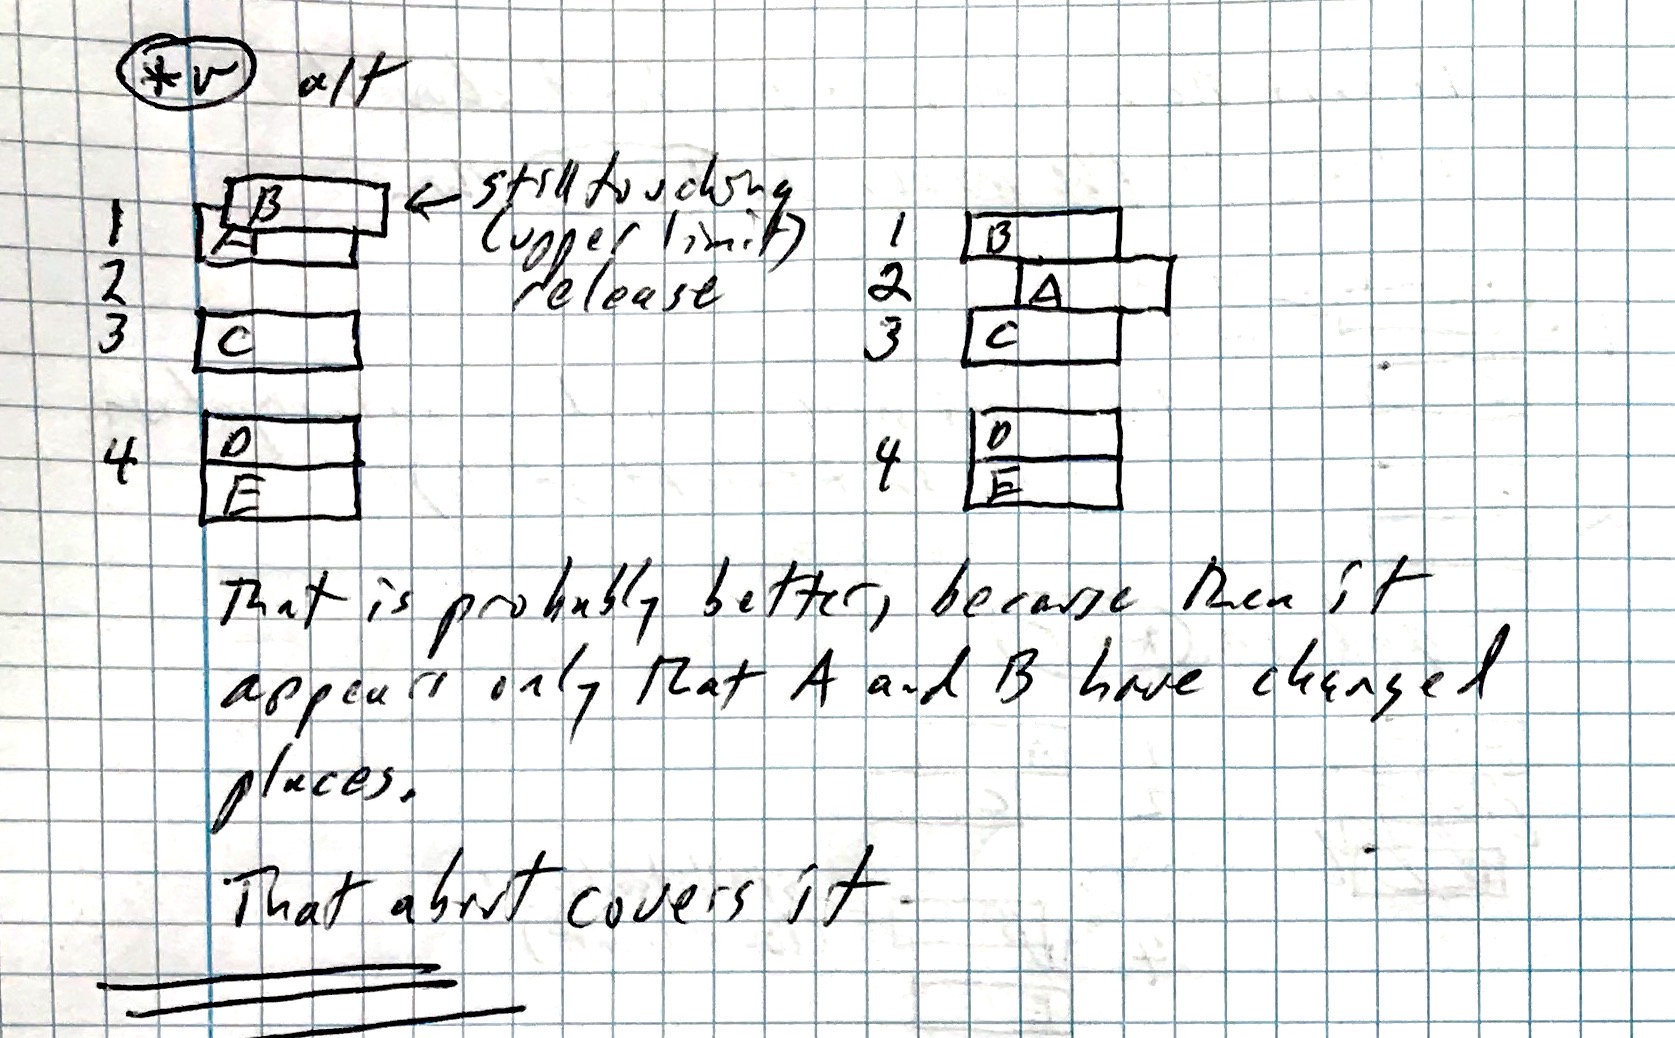 *v alt
B
still touching
1
A
(upper limit)
1
B
2
release
2
A
3
C
3
C
4
D
4
D
E
E
That is probably better, because then it
appears only that A and B have changed
places.
That about covers it.